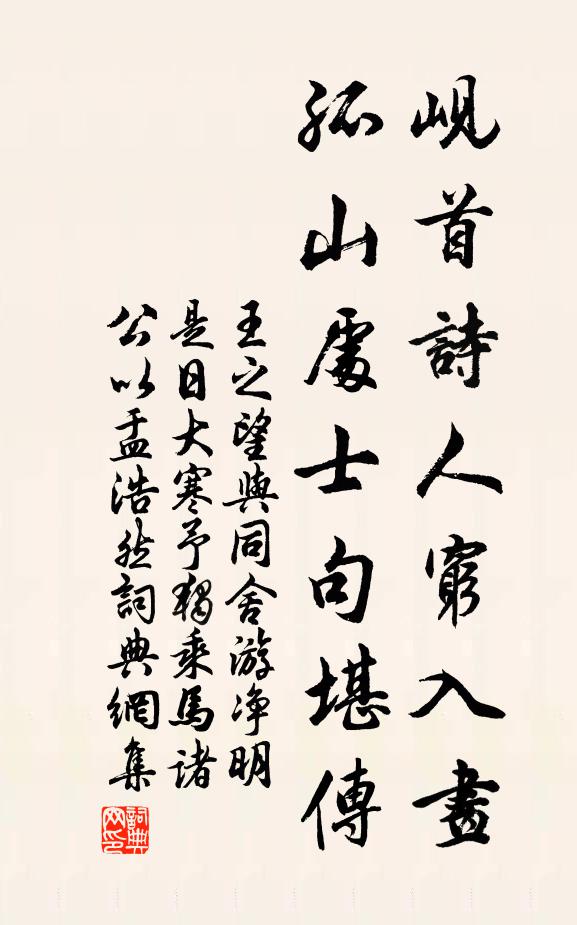 峴首詩人窮入畫
孤山處士句堪傳
王之望與同舍游净明
是日大寒予獨乘馬諸
公以孟浩然詞典網集
詞典網印